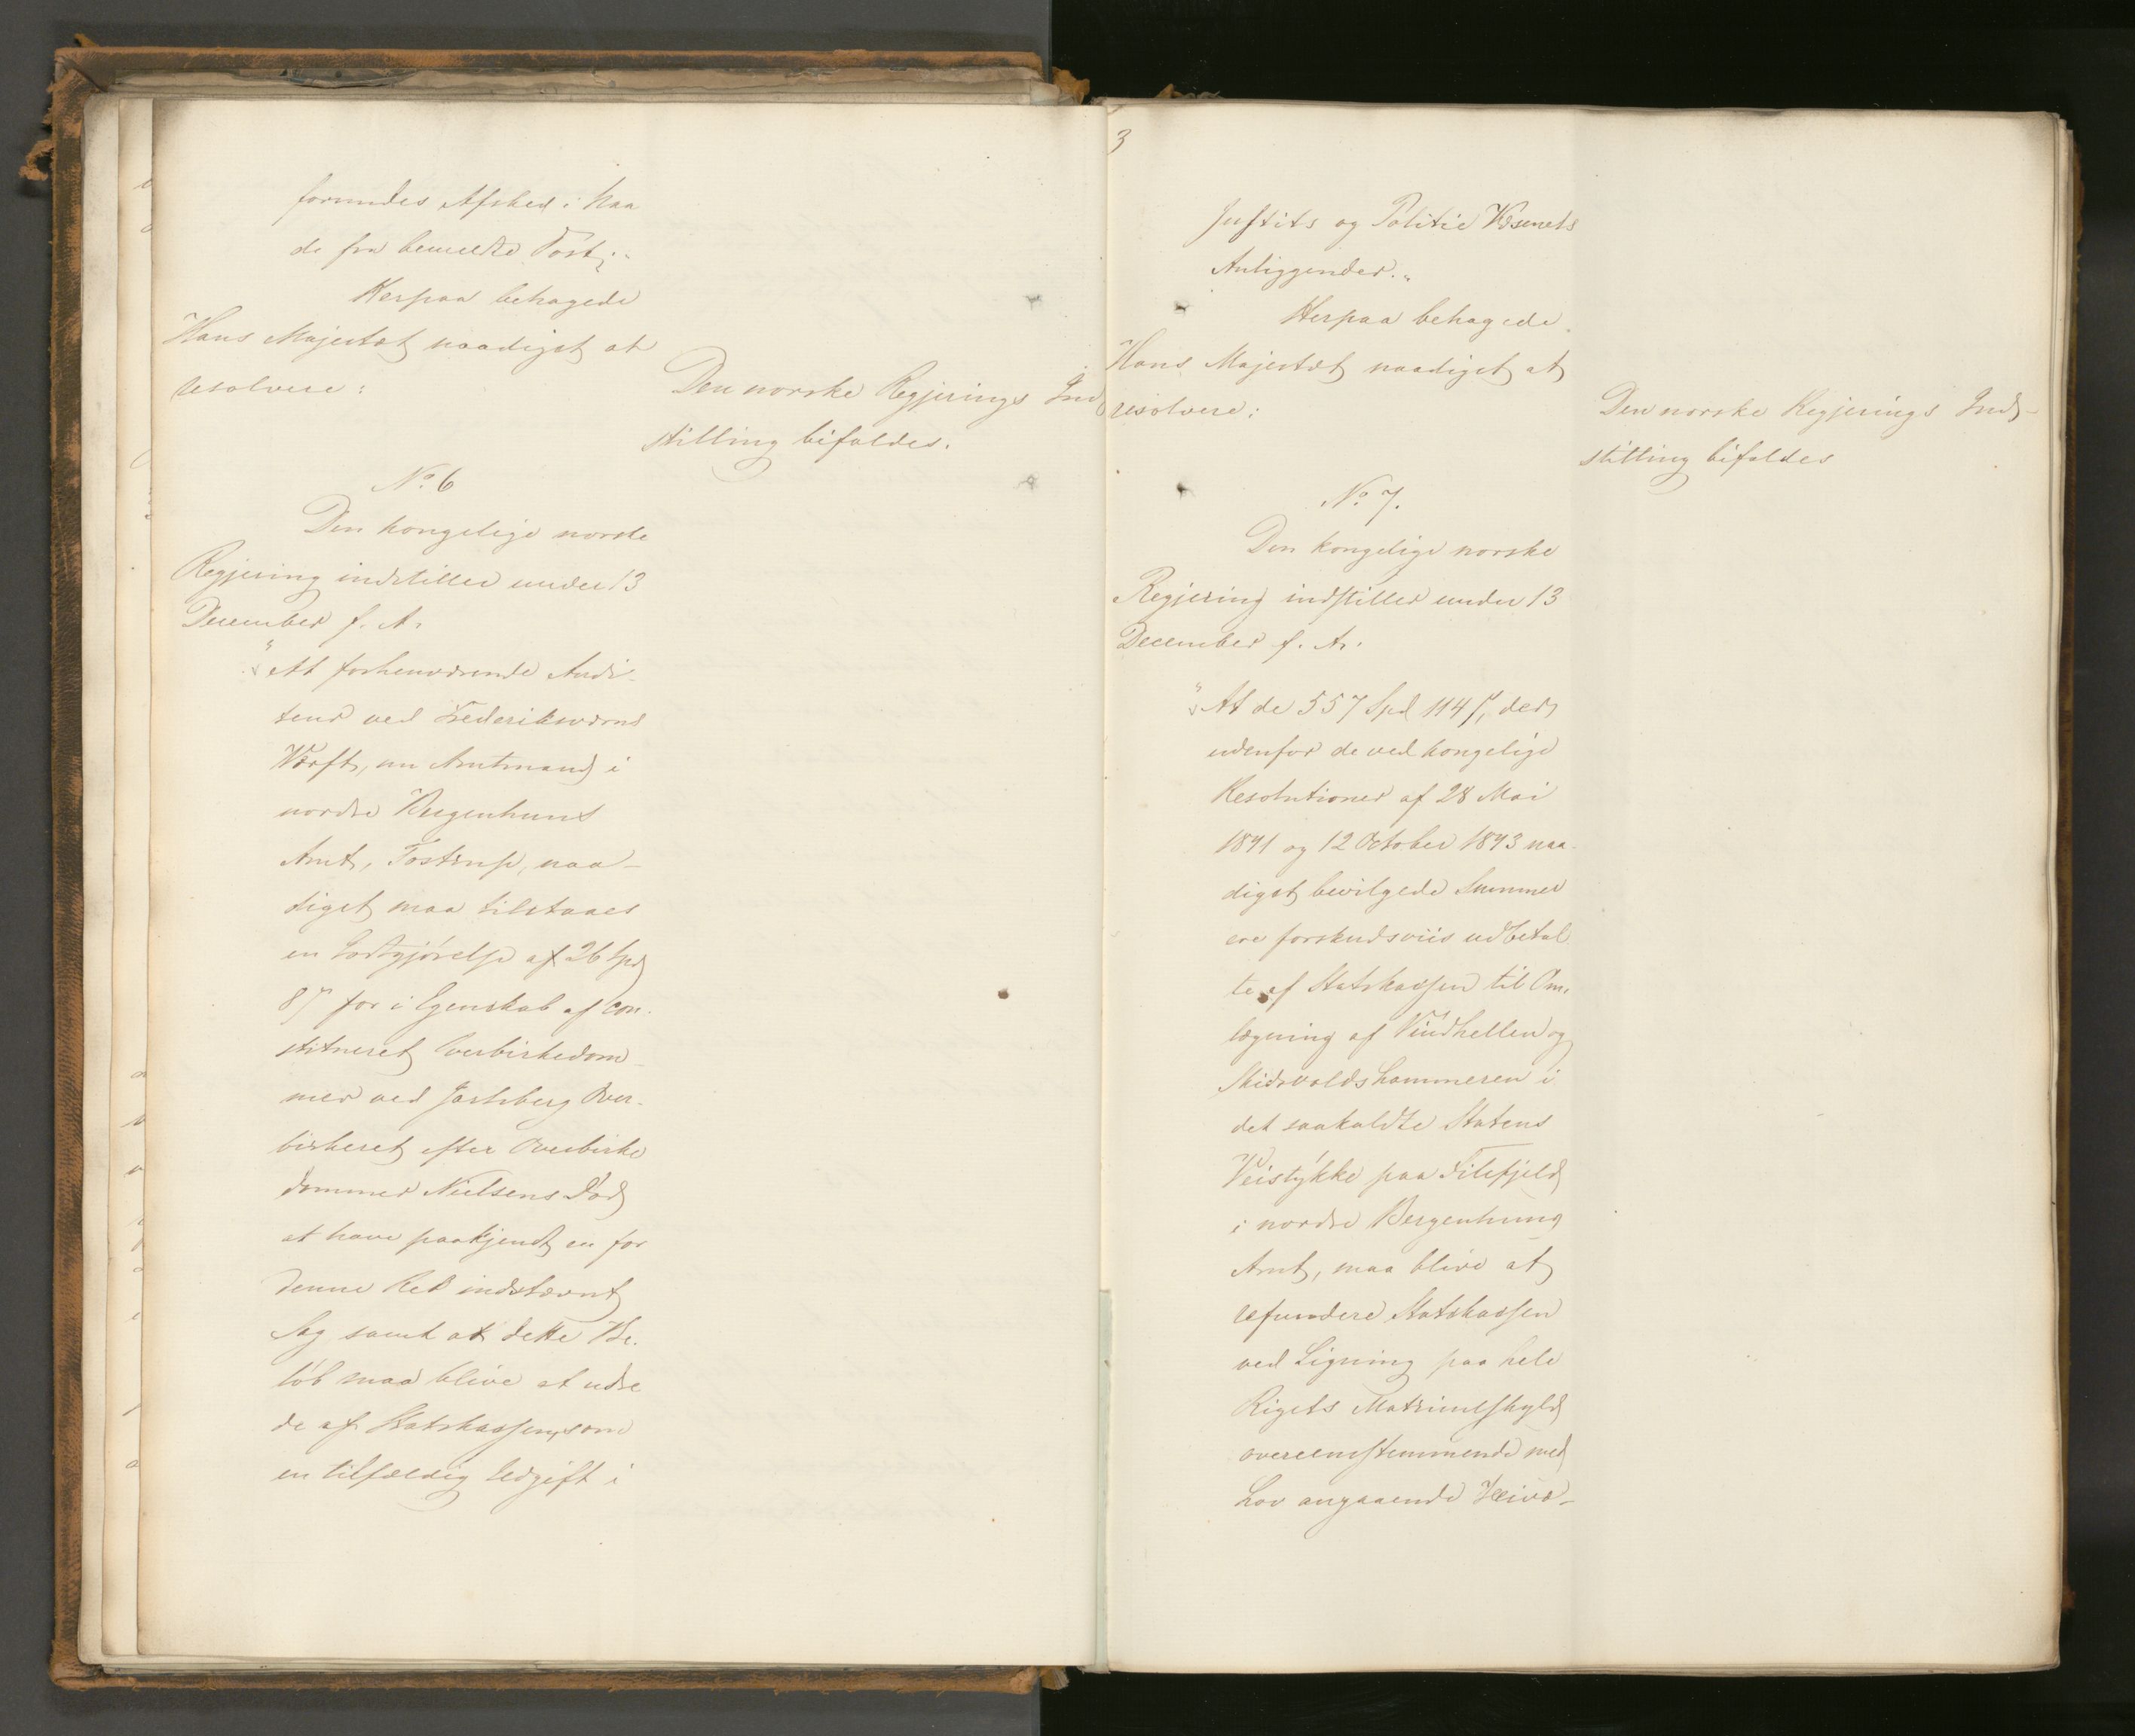 forundes Afsked i Naa
de fra bemeldte Post."
Herpaa behagede
Hans Majestæt naadigst at
resolvere:
Den norske Regjerings Ind
stilling bifaldes.
No. 6
Den kongelige norske
Regjering indstiller under 13
December f. A.
"At forhenværende Audi-
teur ved Frederiksværns
Værft, nu Amtmand i
nordre Bergenhuus
Amt, Tostrup, naa-
digst maa tilstaaes
en Godtgjørelse af 26 Spd
8 ß for i Egenskab af con-
stitueret Overbirkedom-
mer ved Jarlsberg Over-
birkeret efter Overbirke
dommer Nielsens Død
at have paakjendt en for
denne Ret indstævnt
Sag samt at dette Be-
løb maa blive at udre
de af Statskassen, som
en tilfældig Udgift i
3
Justits og Politie Væsenets
Anliggender."
Herpaa behagede
Hans Majestæt naadigst at
resolvere:
Den norske Regjerings Ind-
stilling bifaldes
No. 7.
Den kongelige norske
Regjering indstiller under 13
December f. A.
"At de 557 Spd 114 ß, der
udenfor de ved kongelige
Resolutioner af 28 Mai
1841 og 12 October 1843 naa-
digst bevilgede Summer
ere forskudsviis udbetal
te af Statskassen til Om-
lægning af Vindhellen og
Skidsvoldshammeren i
det saakaldte Statens
Veistykke paa Filefjeld
i nordre Bergenhuus
Amt, maa blive at
refundere Statskassen
ved Ligning paa hele
Rigets Matriculskyld
overeensstemmende med
Lov angaaende Veivæ-